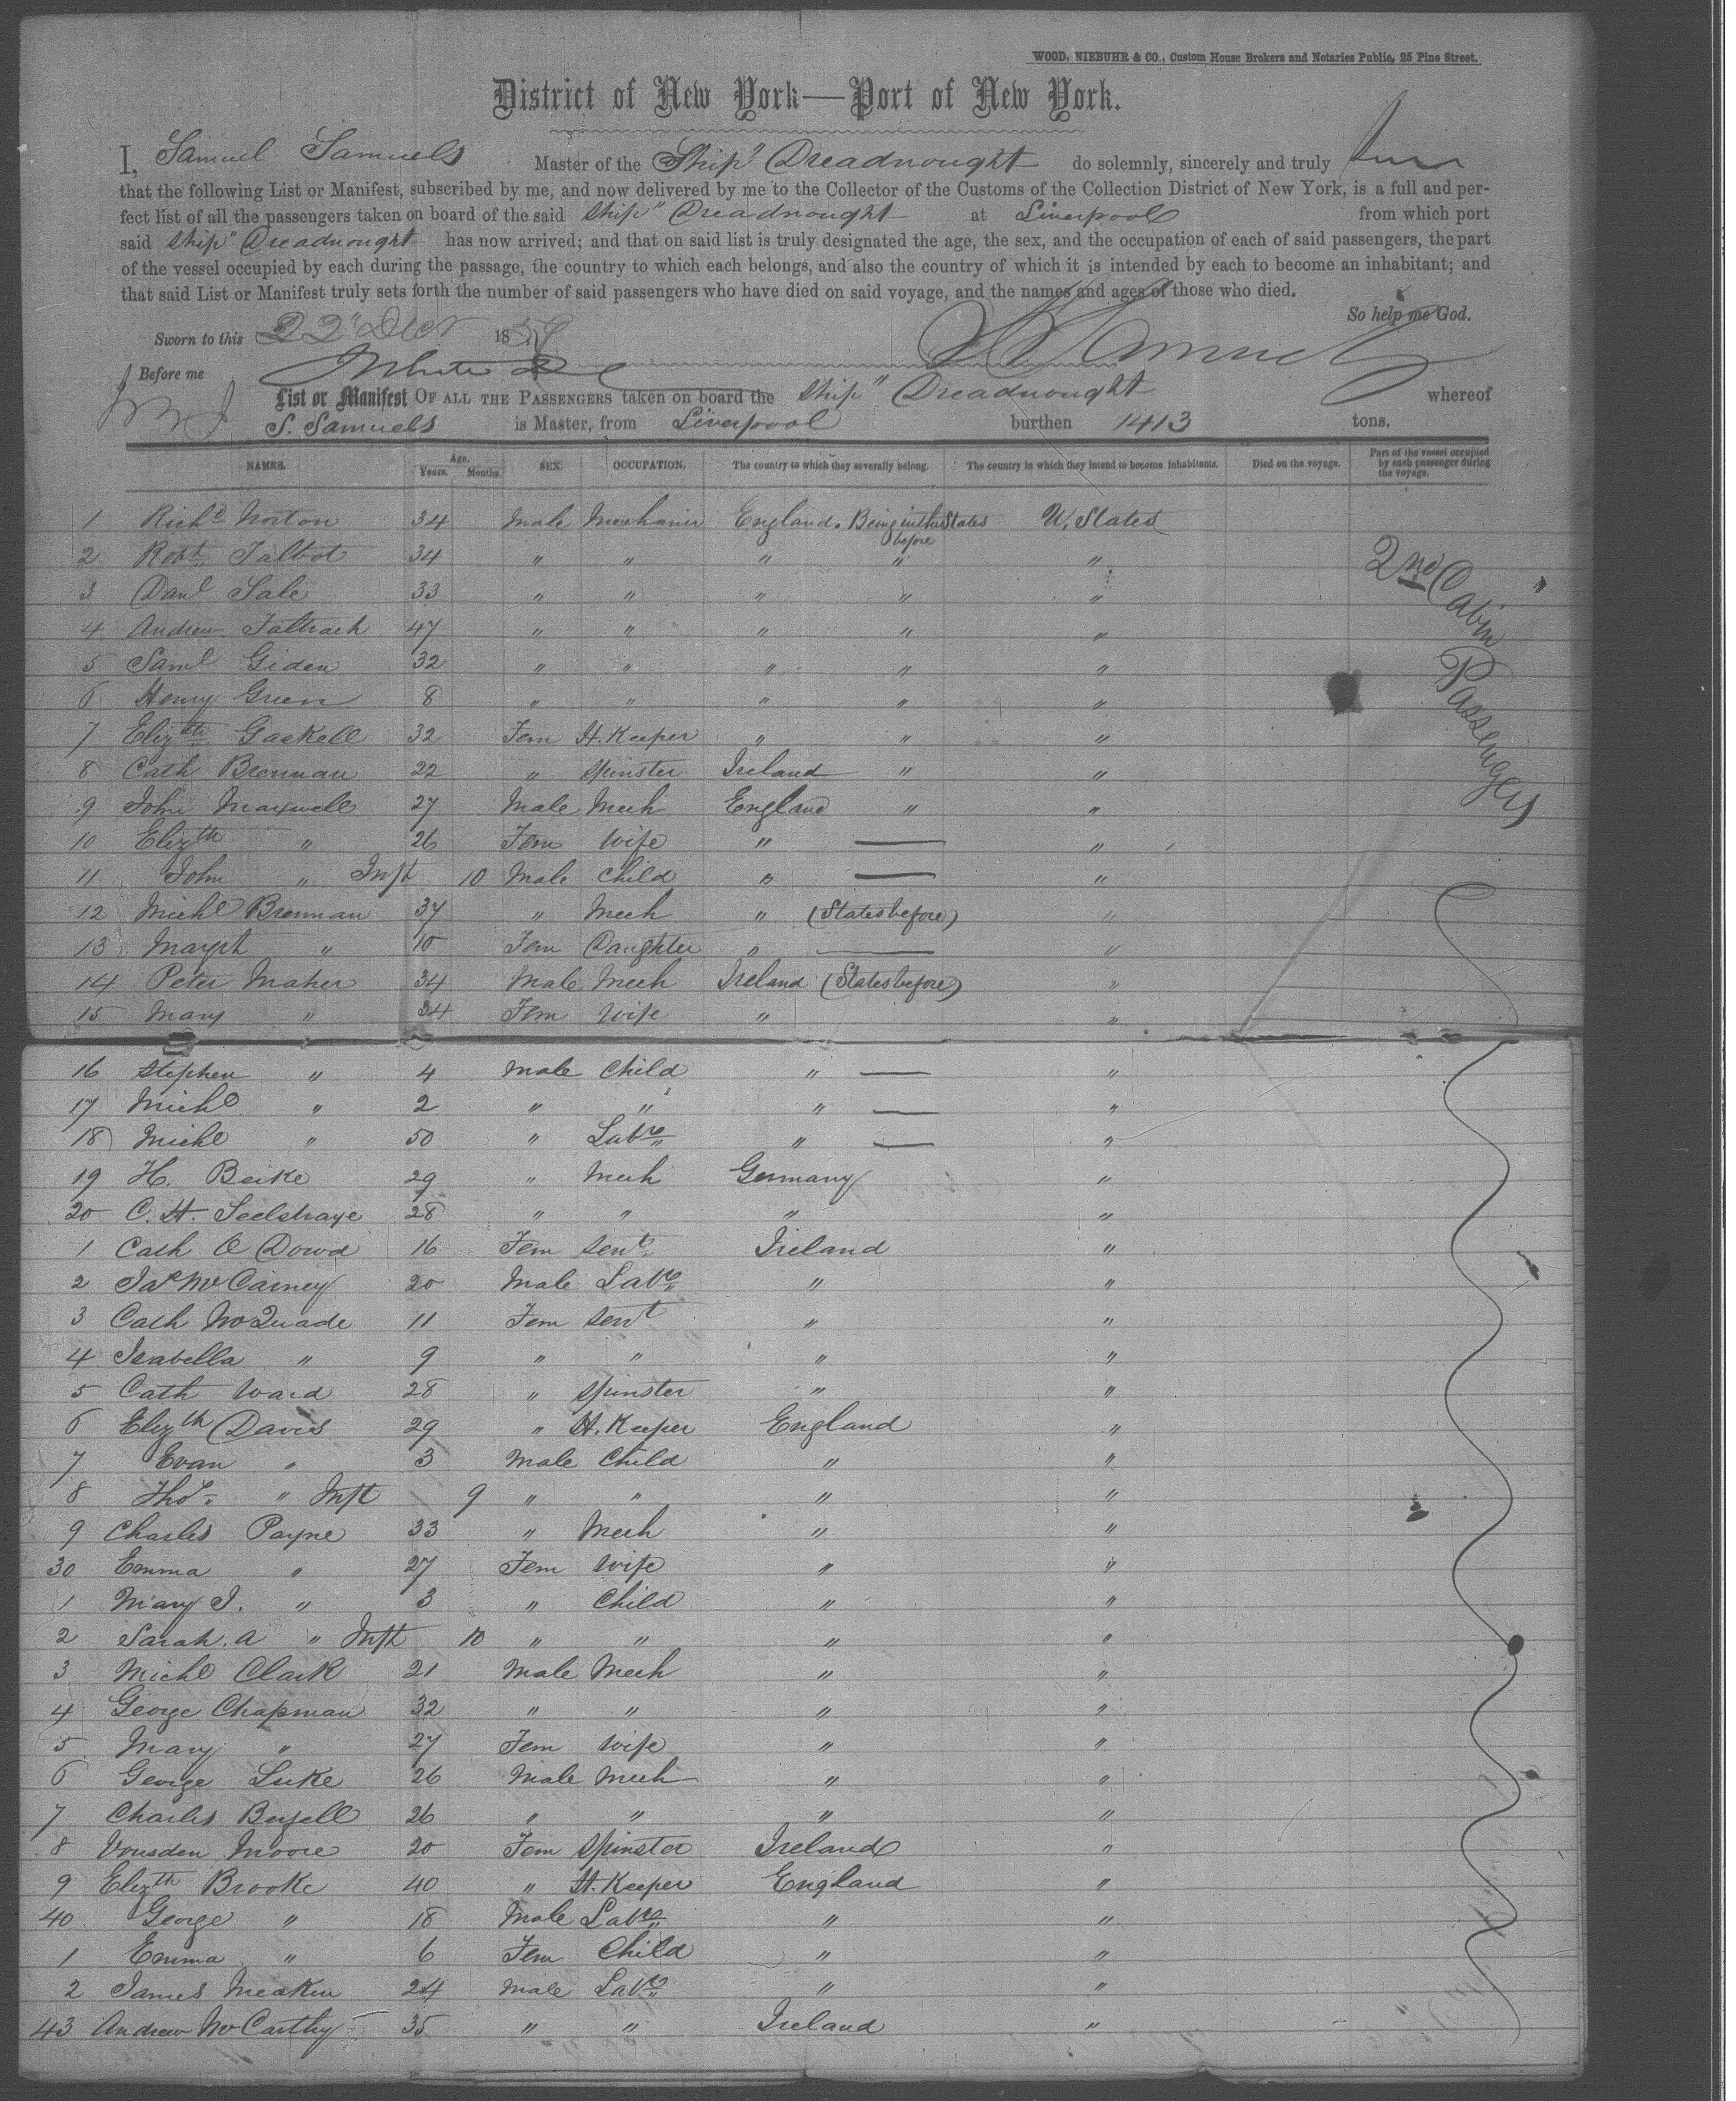 WOOD, NIEBUHR & CO., Custom House Brokers and Notaries Public, 25 Pine Street.
District of New York—Port of New York.
I, Samuel Samuels Master of the Ship "Dreadnought do solemnly, sincerely and truly
that the following List or Manifest, subscribed by me, and now delivered by me to the Collector of the Customs of the Collection District of New York, is a full and per-
fect list of all the passengers taken on board of the said Ship" Dreadnought at Liverpool from which port
said Ship" Dreadnought has now arrived; and that on said list is truly designated the age, the sex, and the occupation of each of said passengers, the part
of the vessel occupied by each during the passage, the country to which each belongs, and also the country of which it is intended by each to become an inhabitant; and
that said List or Manifest truly sets forth the number of said passengers who have died on said voyage, and the names and ages of those who died.
So help me God.
Sworn to this 22" Decr 1859 S Samuels
Before me
List or Manifest OF ALL THE PASSENGERS taken on board the Ship" Dreadnought whereof
S. Samuels is Master, from Liverpool burthen 1413 tons.
NAMES. Age. Years. Months. SEX. OCCUPATION. The country to which they severally belong. The country in which they intend to become inhabitants. Died on the voyage. Part of the vessel occupied by each passenger during the voyage.
1 Richd Norton 34 Male Mechanic England. Being in the States before U. States
2 Robt Talbot 34 " " " " "
2nd Cabin Passengers "
3 Danl Sale 33 " " " " "
4 Andrew 47 " " " " "
5 Saml Giden 32 " " " " "
6 Henry Green 8 " " " " "
7 Elizth Gaskell 32 Fem H. Keeper " " "
8 Cath Brennan 22 " Spinster Ireland " "
9 John Maxwell 27 Male Mech England " "
10 Elizth " 26 Fem Wife " — "
11 John " Inft 10 Male Child " — "
12 Michl Brennan 37 " Mech " (States before) "
13 Margt " 10 Fem Daughter " — "
14 Peter Maher 34 Male Mech Ireland (States before) "
15 Mary " 34 Fem Wife " "
16 Stephen " 4 Male Child " — "
17 Michl " 2 " " " — "
18 Michl " 50 " Labr " — "
19 H. Beike 29 " Mech Germany "
20 C. H. Seelstraye 28 " " " "
1 Cath O Dowd 16 Fem Sert Ireland "
2 Jas McCarney 20 Male Labr " "
3 Cath McQuade 11 Fem Servt " "
4 Isabella " 9 " " " "
5 Cath Ward 28 " Spinster " "
6 Elizth Davis 29 " H. Keeper England "
7 Evan " 3 Male Child " "
8 Thos " Inft 9 " " " "
9 Charles Payne 33 " Mech " "
30 Emma " 27 Fem Wife " "
1 Mary J. " 3 " Child " "
2 Sarah. A " Inft 10 " " " "
3 Michl Clark 21 Male Mech " "
4 George Chapman 32 " " " "
5 Mary " 27 Fem Wife " "
6 George Luke 26 Male Mech " "
7 Charles 26 " " " "
8 Vousden Moore 20 Fem Spinster Ireland "
9 Elizth Brooke 40 " H. Keeper England "
40 George " 18 Male Labr " "
1 Emma " 6 Fem Child " "
2 James Meakin 24 Male Labr " "
43 Andrew McCarthy 35 " " Ireland "